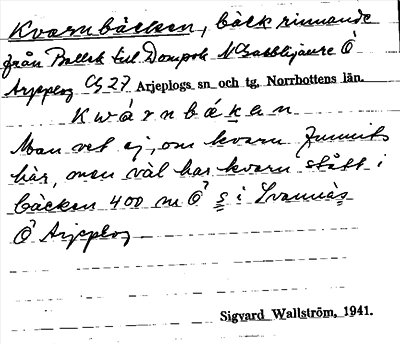 Kvarnbäcken, bäck rinnande
från till NGasblijaure Ö
Arjeplog G 27 Arjeplogs sn och tg, Norrbottens län.
Kwárnbákan
Man vet ej, om kvarn funnits
här, men väl har kvarn stått i
bäcken 400 m Ö s i Svannäs
Ö Arjeplog
Sigvard Wallström, 1941.